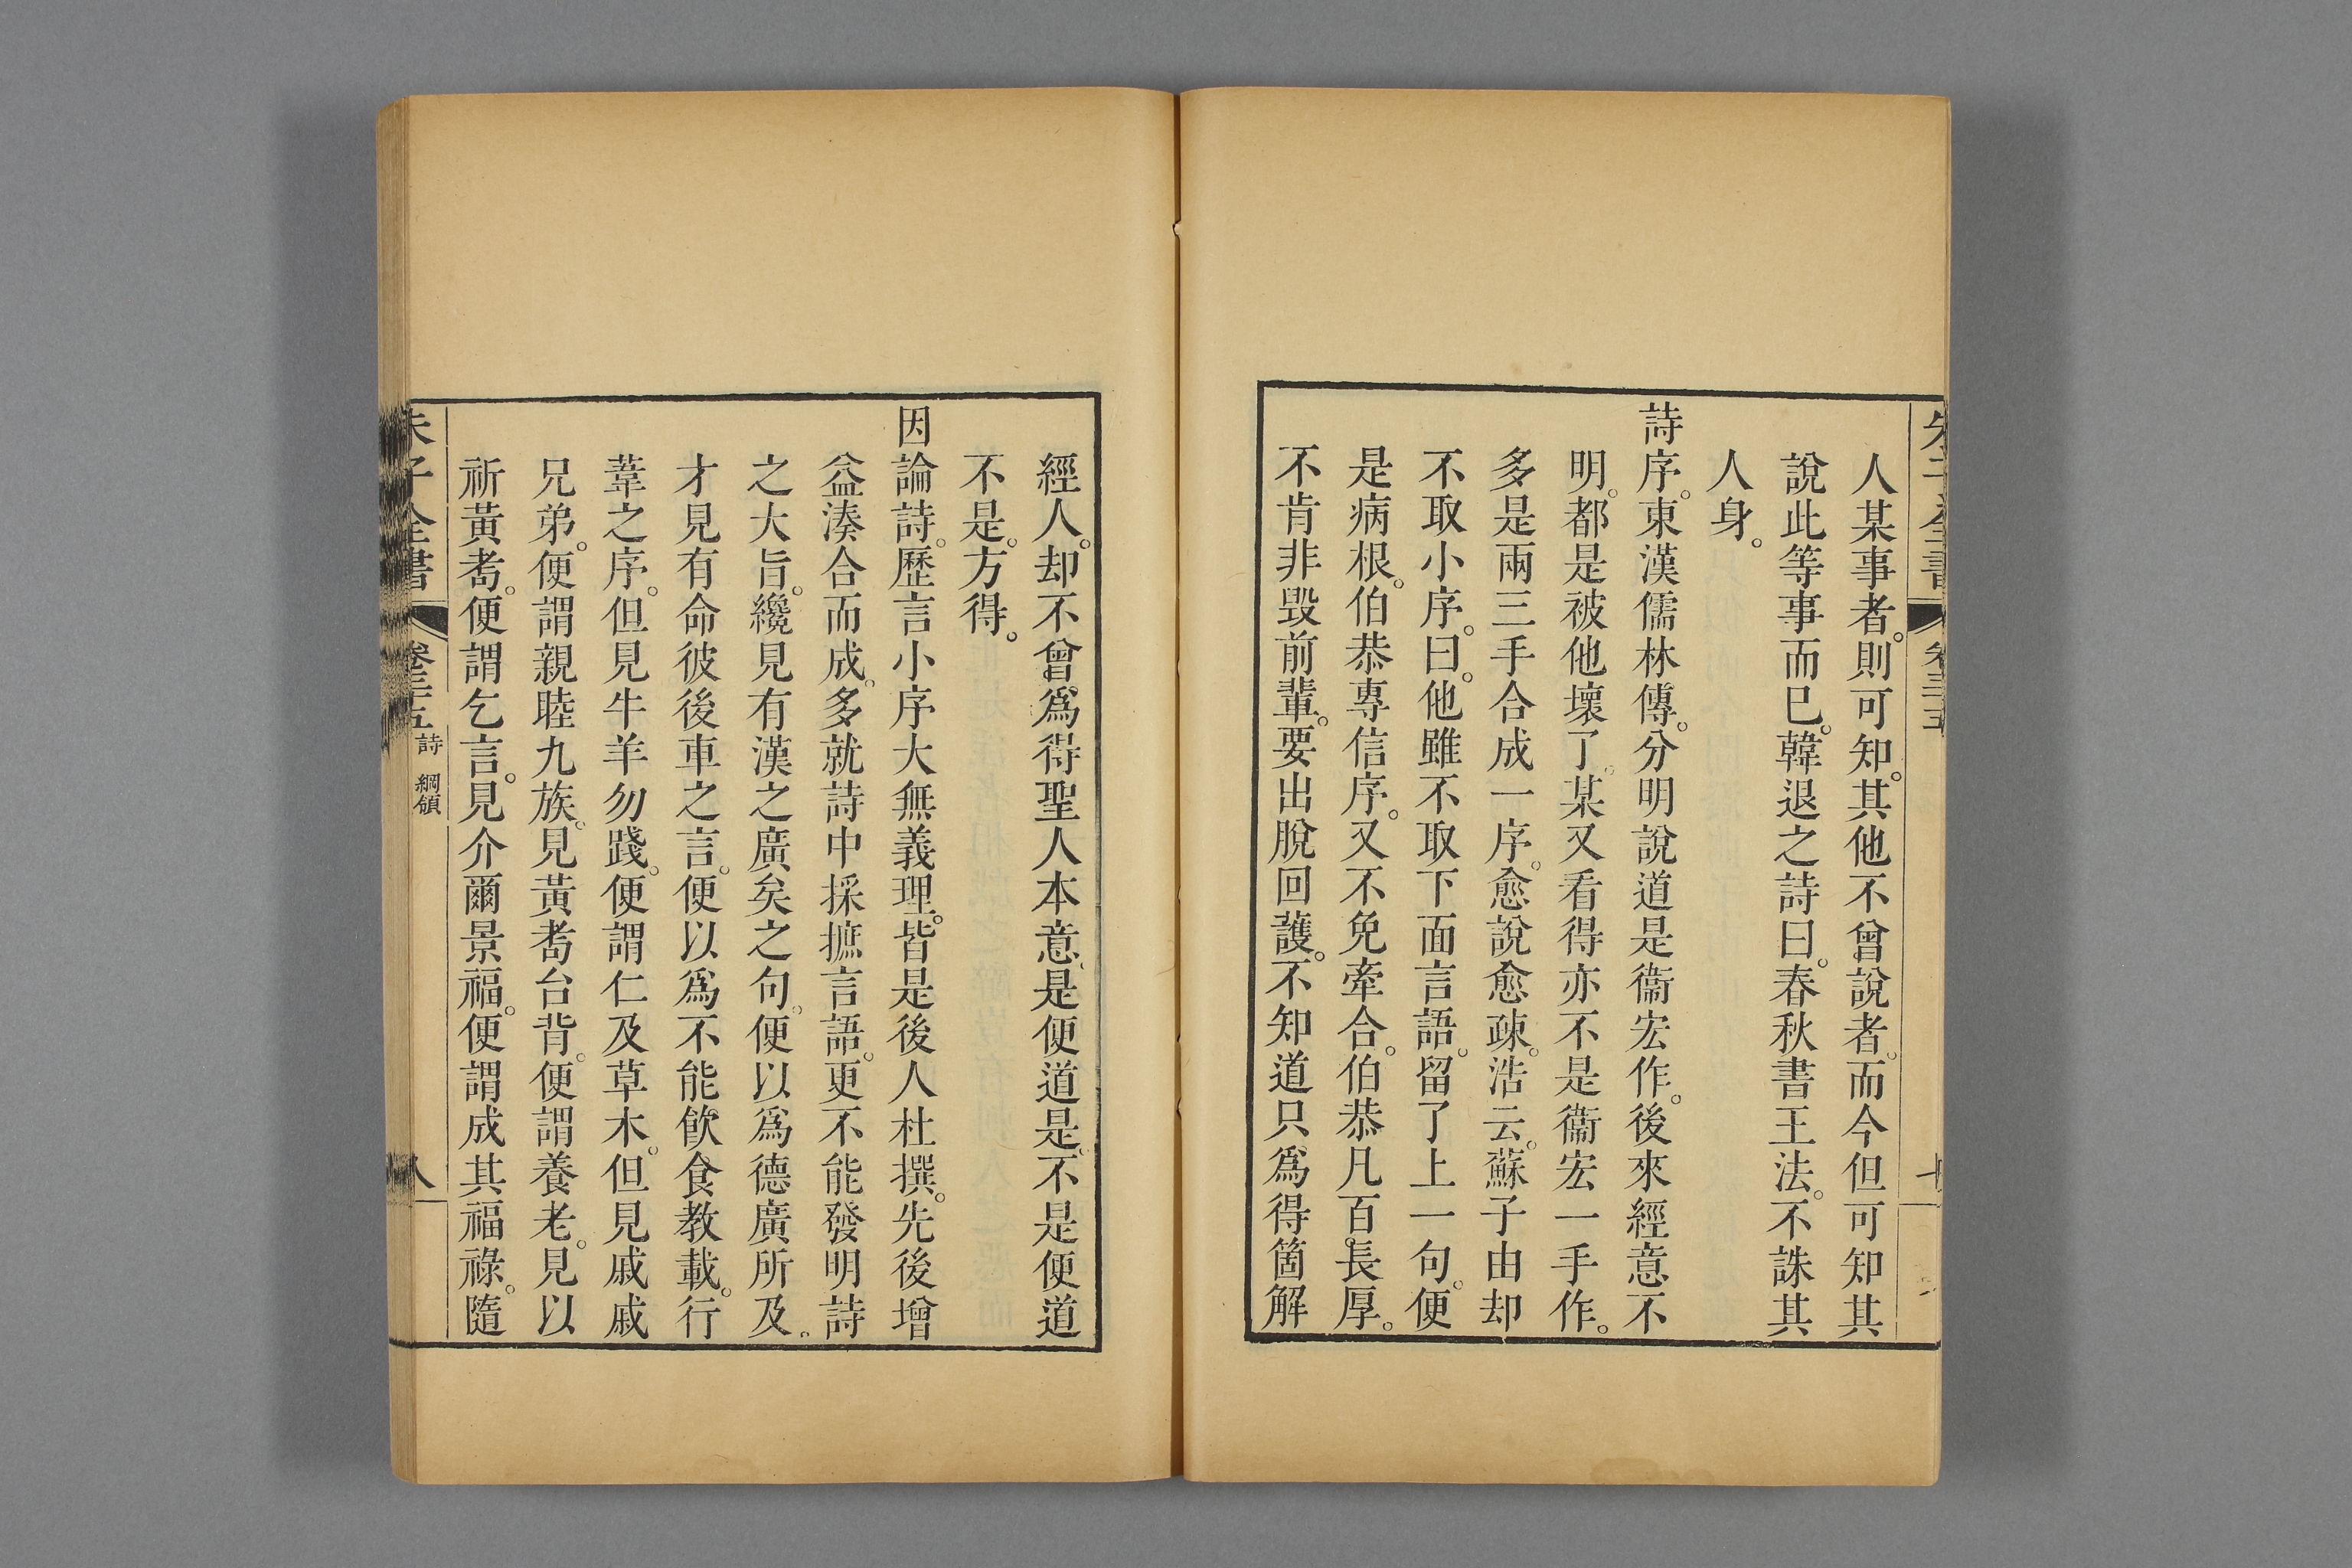 人某事者。則可知。其他不曾說者。而今但可知其
說此等事而巳。韓退之詩曰。春秋書王法。不誅其
人身。
詩序。東漢儒林傳。分明說道是衞宏作。後來經意不
明。都是被他壞了。某又看得亦不是衞宏一手作。
多是兩三手合成一序。愈說愈疎。浩云。蘇子由却
不取小序。曰。他雖不取下面言語。留了上一句。便
是病根。伯恭專信序。又不免牽合。伯恭凡百長厚。
不肯非毀前輩。要出脫回護。不知道只爲得箇解
經人。却不曾爲得聖人本意。是便道是。不是便道
不是。方得。
因論詩。歷言小序大無義理。皆是後人杜撰。先後增
益湊合而成。多就詩中採摭言語。更不能發明詩
之大旨。纔見有漢之廣矣之句。便以爲德廣所及。
才見有命彼後車之言。便以爲不能飮食教載。行
葦之序。但見牛羊勿踐。便謂仁及草木。但見戚戚
兄弟。便謂親睦九族。見黃耉台背。便謂養老。見以
祈黃耉。便謂乞言。見介爾景福。便謂成其福祿。隨
朱子全書 卷三十五 詩 綱領 八